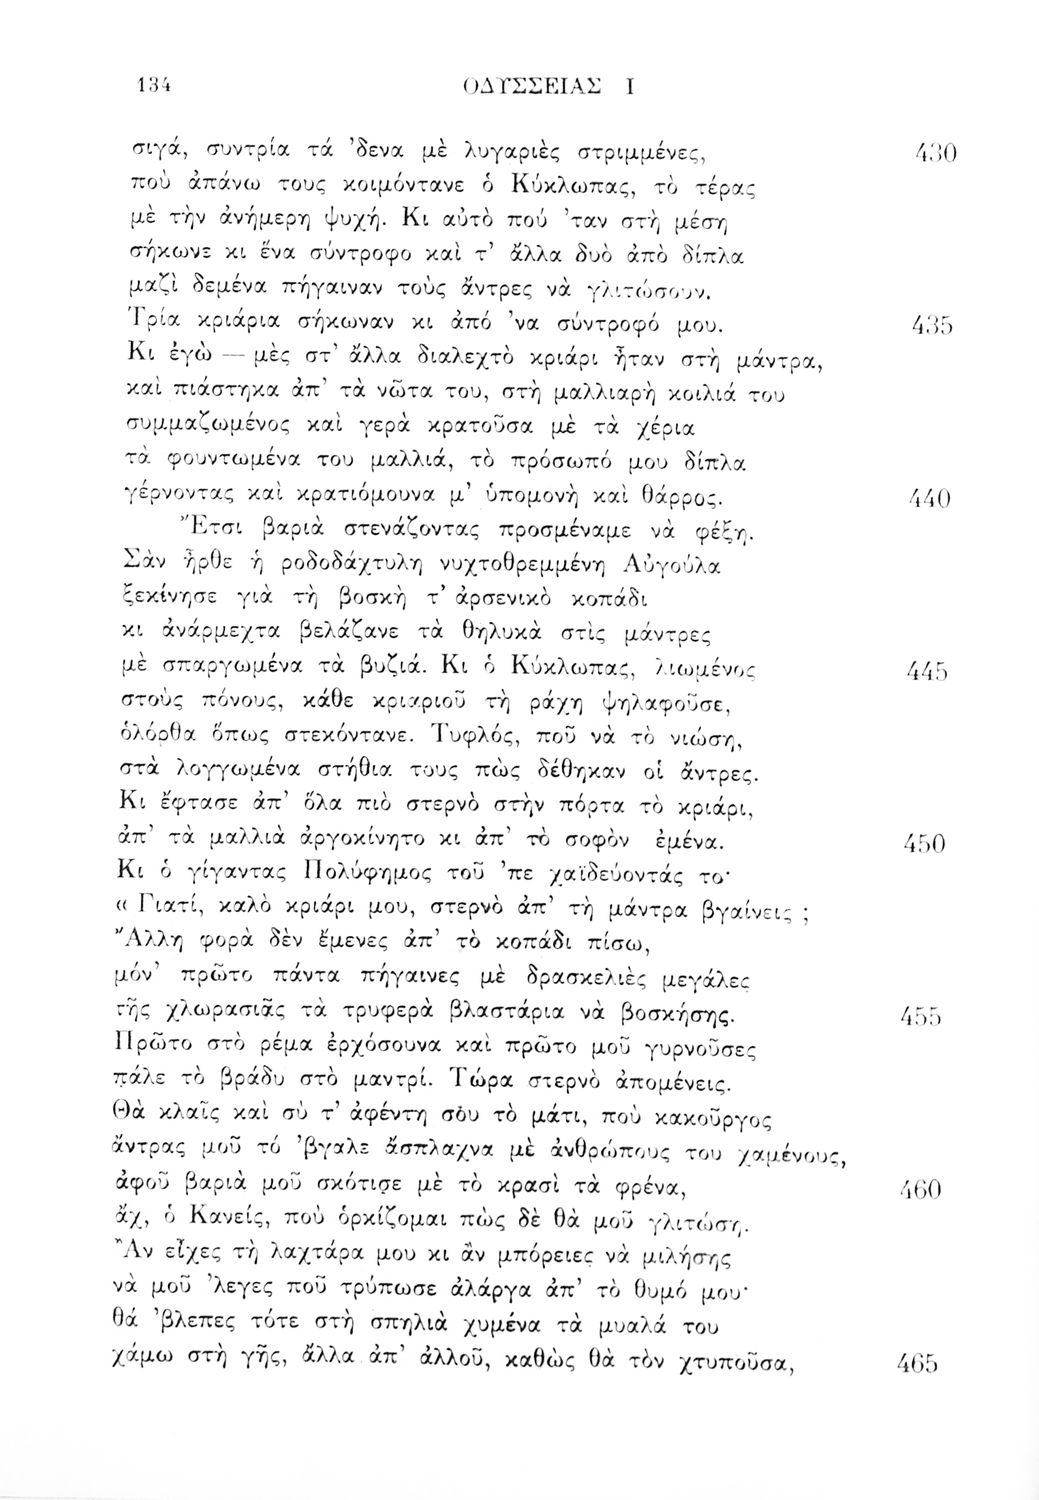 134 ΟΔΥΣΣΕΙΑΣ Ι
σιγά, συντρία τά 'δενα μὲ λυγαριὲς στριμμένες, 430
ποὺ ἀπάνω τους κοιμόντανε ὁ Κύκλωπας, τὸ τέρας
μὲ τὴν ἀνήμερη ψυχή. Κι αὐτὸ πού 'ταν στὴ μέση
σήκωνε κι ἕνα σύντροφο καὶ τ' ἄλλα δυὸ ἀπὸ δίπλα
μαζὶ δεμένα πήγαιναν τοὺς ἄντρες νὰ γλιτώσουν.
Τρία κριάρια σήκωναν κι ἀπό 'να σύντροφό μου. 435
Κι ἐγὼ — μὲς στ' ἄλλα διαλεχτὸ κριάρι ἦταν στὴ μάντρα,
καὶ πιάστηκα ἀπ' τὰ νῶτα του, στὴ μαλλιαρὴ κοιλιά του
συμμαζωμένος καὶ γερὰ κρατοῦσα μὲ τὰ χέρια
τὰ φουντωμένα του μαλλιά, τὸ πρόσωπό μου δίπλα
γέρνοντας καὶ κρατιόμουνα μ' ὑπομονὴ καὶ θάρρος. 440
Ἔτσι βαριὰ στενάζοντας προσμέναμε νὰ φέξη.
Σὰν ἦρθε ἡ ροδοδάχτυλη νυχτοθρεμμένη Αὐγούλα
ξεκίνησε γιὰ τὴ βοσκὴ τ' ἀρσενικὸ κοπάδι
κι ἀνάρμεχτα βελάζανε τὰ θηλυκὰ στὶς μάντρες
μὲ σπαργωμένα τὰ βυζιά. Κι ὁ Κύκλωπας, λιωμένος 445
στοὺς πόνους, κάθε κριαριοῦ τὴ ράχη ψηλαφοῦσε,
ὁλόρθα ὅπως στεκόντανε. Τυφλός, ποῦ νὰ τὸ νιώση,
στὰ λογγωμένα στήθια τους πὼς δέθηκαν οἱ ἄντρες.
Κι ἔφτασε ἀπ' ὅλα πιὸ στερνὸ στὴν πόρτα τὸ κριάρι,
ἀπ' τὰ μαλλιὰ ἀργοκίνητο κι ἀπ' τὸ σοφὸν ἐμένα. 450
Κι ὁ γίγαντας Πολύφημος τοῦ 'πε χαϊδεύοντάς το·
« Γιατί, καλὸ κριάρι μου, στερνὸ ἀπ' τὴ μάντρα βγαίνεις ;
Ἄλλη φορὰ δὲν ἔμενες ἀπ' τὸ κοπάδι πίσω,
μόν' πρῶτο πάντα πήγαινες μὲ δρασκελιὲς μεγάλες
τῆς χλωρασιᾶς τὰ τρυφερὰ βλαστάρια νὰ βοσκήσης. 455
Πρῶτο στὸ ρέμα ἐρχόσουνα καὶ πρῶτο μοῦ γυρνοῦσες
πάλε τὸ βράδυ στὸ μαντρί. Τώρα στερνὸ ἀπομένεις.
Θὰ κλαῖς καὶ σὺ τ' ἀφέντη σου τὸ μάτι, ποὺ κακοῦργος
ἄντρας μοῦ τό 'βγαλε ἄσπλαχνα μὲ ἀνθρώπους του χαμένους,
ἀφοῦ βαριὰ μοῦ σκότισε μὲ τὸ κρασὶ τὰ φρένα, 460
ἄχ, ὁ Κανείς, ποὺ ὁρκίζομαι πὼς δὲ θὰ μοῦ γλιτώση.
Ἂν εἶχες τὴ λαχτάρα μου κι ἂν μπόρειες νὰ μιλήσης
νὰ μοῦ 'λεγες ποῦ τρύπωσε ἀλάργα ἀπ' τὸ θυμό μου·
θά 'βλεπες τότε στὴ σπηλιὰ χυμένα τὰ μυαλά του
χάμω στὴ γῆς, ἄλλα ἀπ' ἀλλοῦ, καθὼς θὰ τὸν χτυποῦσα, 465